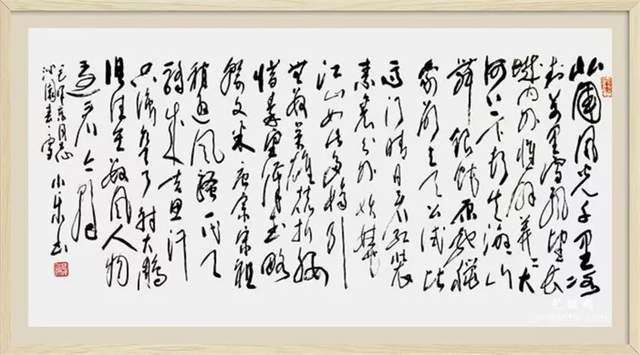 北国风光千里冰
封万里雪飘望长
城内外惟余莽々大
河上下顿失滔々山
舞银蛇原驰蜡
象欲与天公试比
高须晴日看红装
素裹分外妖娆
江山如此多娇引
无数英雄竞折腰
惜秦皇汉武略
输文采唐宗宋祖
稍逊风骚一代天
骄成吉思汗
只识弯弓射大雕
俱往矣数风人物
还看今朝
毛泽东同志
沁园春雪